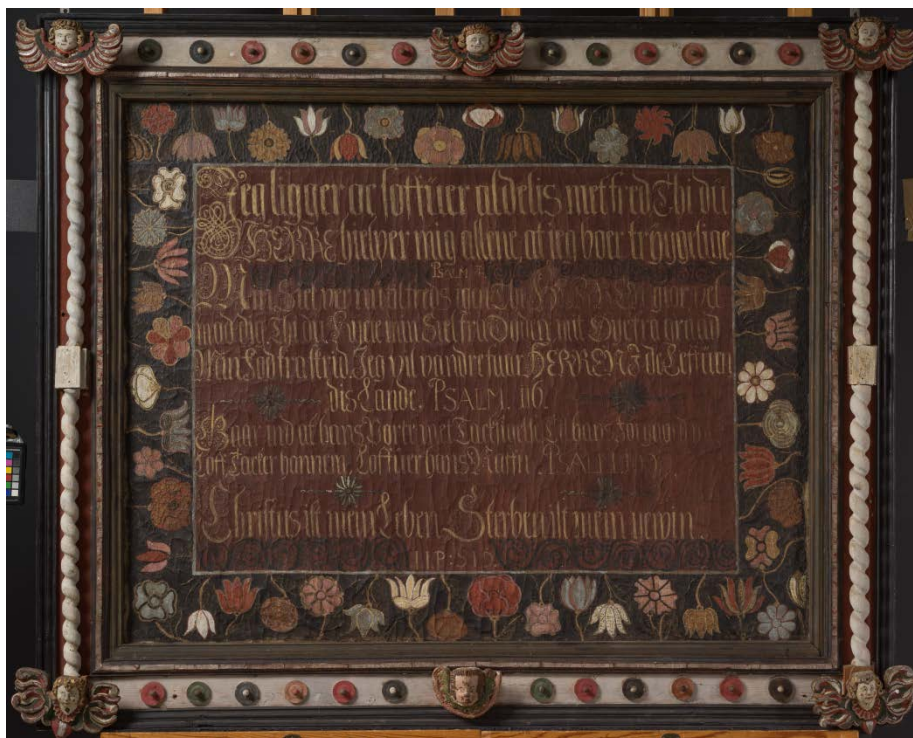 Jeg ligger oc soffuer aldelis met fred Thi du
HERRE hielper mig allene, at ieg boer tryggelige
PSALM
Min Siel ver nu tilfreds igen Thi HERREN giør vel
mod dig Thi du haffr min Siel fra Døden mit
min Fod fra stød. Jeg vil vandre for HERREN I de Leffuen
dis Lande. PSALM. 116.
Gaar ind at hans Porte met
Loff Tacker hannem, Loffuer hans Naffn. PSALM
Christus ist mein Leben Sterben ist mein gewin